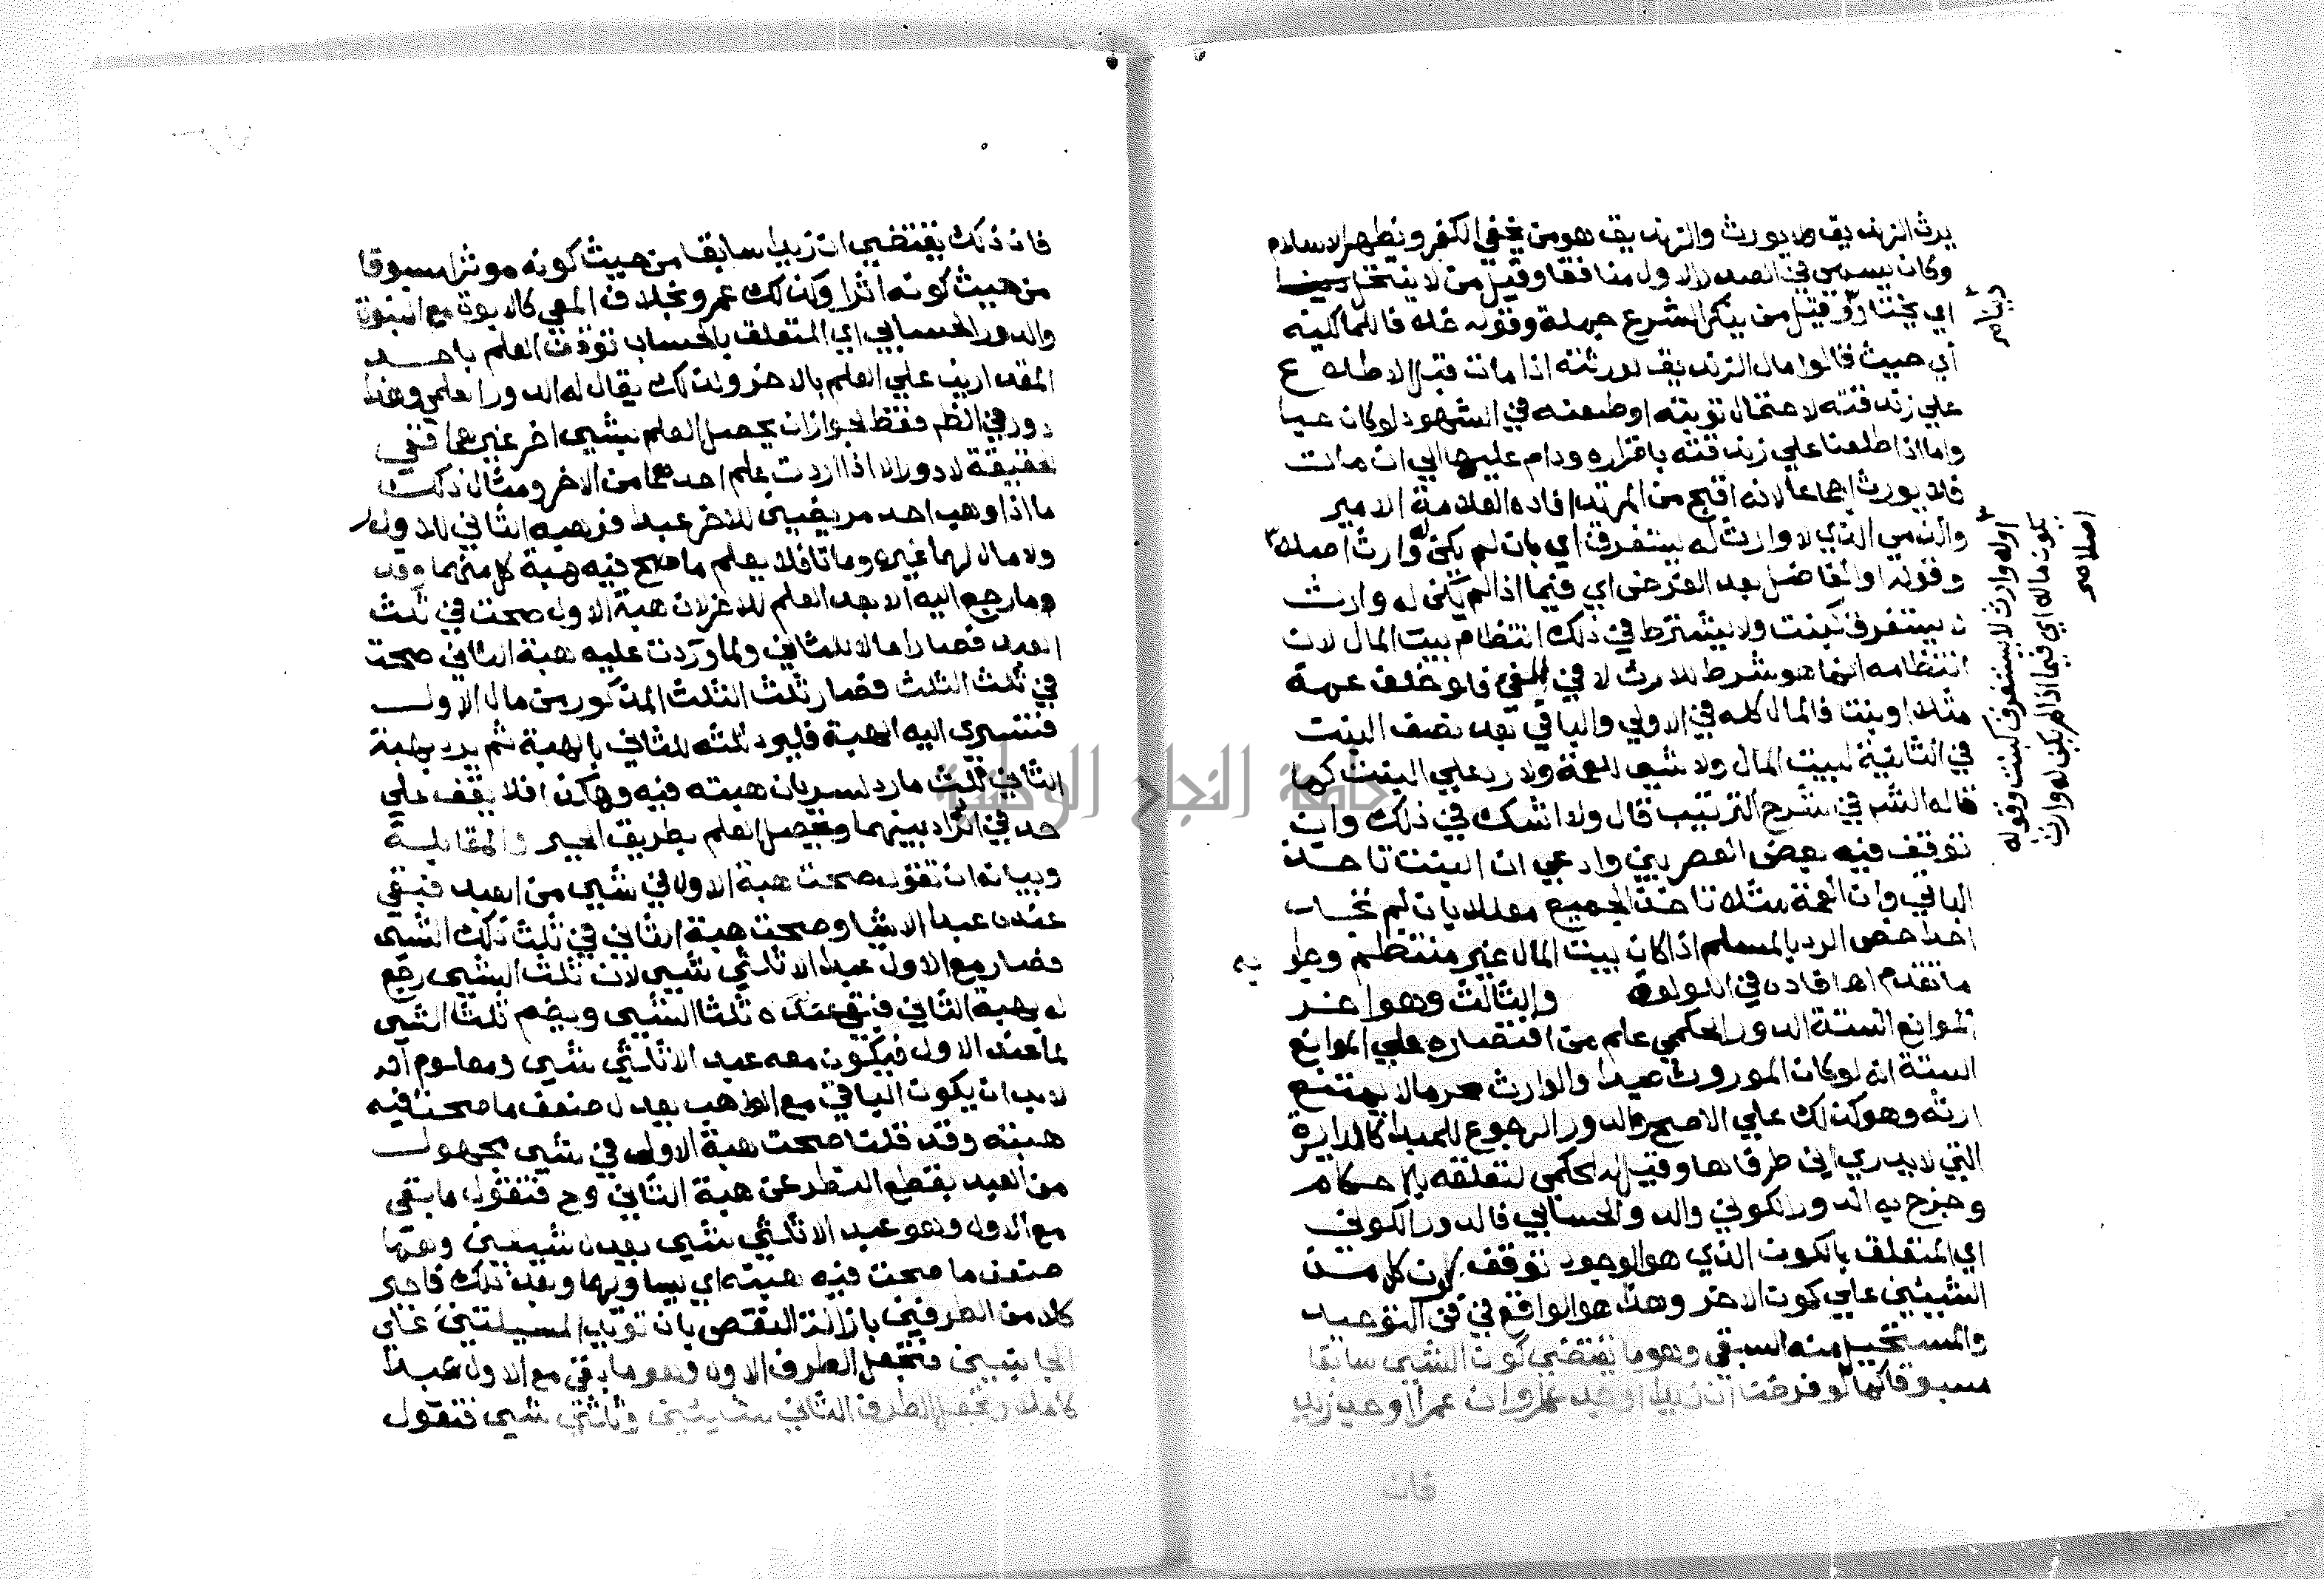 يرث الزنديق ولا يورث والزنديق هو من يخفي الكفر ويظهر الاسلام
وكان يسمى في الصدر الاول منافقا وقيل من لا ينتحل دينا
اي يختار وقيل من ينكر الشرع جملة وقوله خلافا للمالكية
اي حيث قالوا مال الزنديق لورثته اذا مات قبل الاطلاع
علي زندقته لاحتمال توبته او طعنه في الشهود لو كان حيا
واما اذا اطلعنا علي زندقته باقراره ودام عليها الي ان مات
فلا يورث اجماعا لانه اقبح من المرتد افاده العلامة الامير
والذمي الذي لا وارث له يستغرق اي بان لم يكن له وارث اصلا
وقوله او الفاضل بعد الفرض اي فيما اذا لم يكن له وارث
لا يستغرق كبنت ولا يشترط في ذلك انتظام بيت المال لان
انتظامه انما هو شرط للارث لا في الفيء فلو خلف عمة
مثلا او بنت فالمال كله في الاولي والباقي بعد نصف البنت
في الثانية لبيت المال ولا شيء للعمة ولا رد علي البنت كما
قاله الشم في شرح الترتيب قال ولا شك في ذلك وان
توقف فيه بعض العصريين وادعي ان البنت تاخذ
الباقي وان العمة مثلا تاخذ الجميع معللا بان لم نجد
احدا خص الرد بالمسلم اذا كان بيت المال غير منتظم
ما تقدم اه افاده في اللولوة والثالث وهو اخر
الموانع الستة الدور الحكمي علم من اقتصاره علي الموانع
الستة انه لو كان الموروث صيدا والوارث محرما لا يمتنع
ارثه وهو كذلك علي الاصح والدور الرجوع للمبدا كالدايرة
التي لا يدري اين طرفاها وقيل له الحكمي لتعلقه بالاحكام
وخرج به الدور الكوني والدور الحسابي فالدور الكوني
اي المتعلق بالكون الذي هو الوجود توقف كون كل من
الشيئين علي كون الاخر وهذا هو الواقع في فن التوحيد
والمستحيل منه السبقي وهو ما يقتضي كون الشيء سابقا
مسبوقا كما لو فرضنا ان زيدا اوجد عمرا وان عمرا اوجد زيدا
فان
دينا م
او له وارث لا يستغرق كبنت وقوله
بكون ماله اي فيما اذا لم يكن له وارث
اصلا صح
فان ذلك يقتضي ان زيدا سابقا من حيث كونه موثرا مسبوقا
من حيث كونه اثرا وكذلك عمرو بخلاف المعي كالابوة مع البنوة
والدور الحسابي اي المتعلق بالحساب توقف العلم باحد
المقدارين علي العلم بالاخر ولذلك يقال له الدور العلمي وهذا
دور في الظم فقط لجواز ان يحصل العلم بشيء اخر غيرهما ففي
الحقيقة لا دور الا اذا اردت علم احدهما من الاخر ومثال ذلك
ما اذا وهب احد مريضين للاخر عبدا فوهبه الثاني للاول
ولا مال لهما غيره وماتا فلا يعلم ما صح فيه هبة كل منهما وقد
وما رجع اليه الا بعد العلم للاخر لان هبة الاول صحت في ثلث
العبد فصار مالا للثاني ولما وردت عليه هبة الثاني صحت
في ثلث الثلث فصار ثلث الثلث المذكور من مال الاول
فتسري اليه الهبة فليود ثلثه للثاني بالهبة ثم يرد بهبة
الثاني ثلث ما رد لسريان هبته فيه وهكذا فلا يقف علي
حد في التراد بينهما ويحصل العلم بطريق الجبر والمقابلة
وبيانه ان تقول صحت هبة الاول في شيء من العبد فبقي
عنده عبد الا شيا وصحت هبة الثاني في ثلث ذلك الشيء
فصار مع الاول عبد الا ثلثي شيء لان ثلث الشيء رجع
له بهبة الثاني فبقي عنده ثلثا الشيء ويضم ثلث الشيء
لما عند الاول فيكون معه عبد الا ثلثي شيء ومعلوم انه
لا بد ان يكون الباقي مع الواهب يعدل ضعف ما صحت فيه
هبته وقد قلنا صحت هبة الاول في شيء مجهول
من العبد بقطع النظر عن هبة الثاني وح فتقول ما بقي
مع الاول وهو عبد الا ثلثي شيء يعدل شيئين وهما
ضعف ما صحت فيه هبته اي يساويها وبعد ذلك فاجبر
كلا من الطرفين بازالة النقص بان تزيد المستثني علي
الجانبين فتجعل الطرف الاول وهو ما بقي مع الاول عبدا
كاملا وتجعل الطرف الثاني شيئين وثلثي شيء فتقول
جامعة النجاح الوطنية